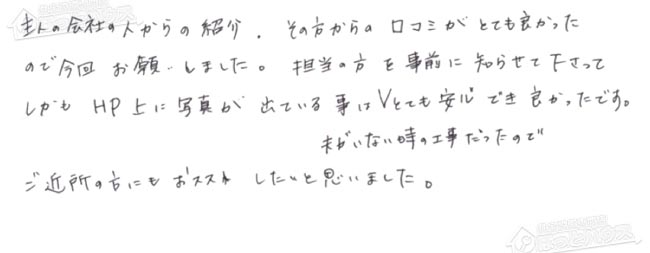 主人の会社の人からの紹介、その方からの口コミがとても良かった
ので今回お願いしました。担当の方を事前に知らせて下さって
しかもHP上に写真が出ている事はVとても安心でき良かったです。
夫がいない時の工事だったので
ご近所の方にもおススメしたいと思いました。